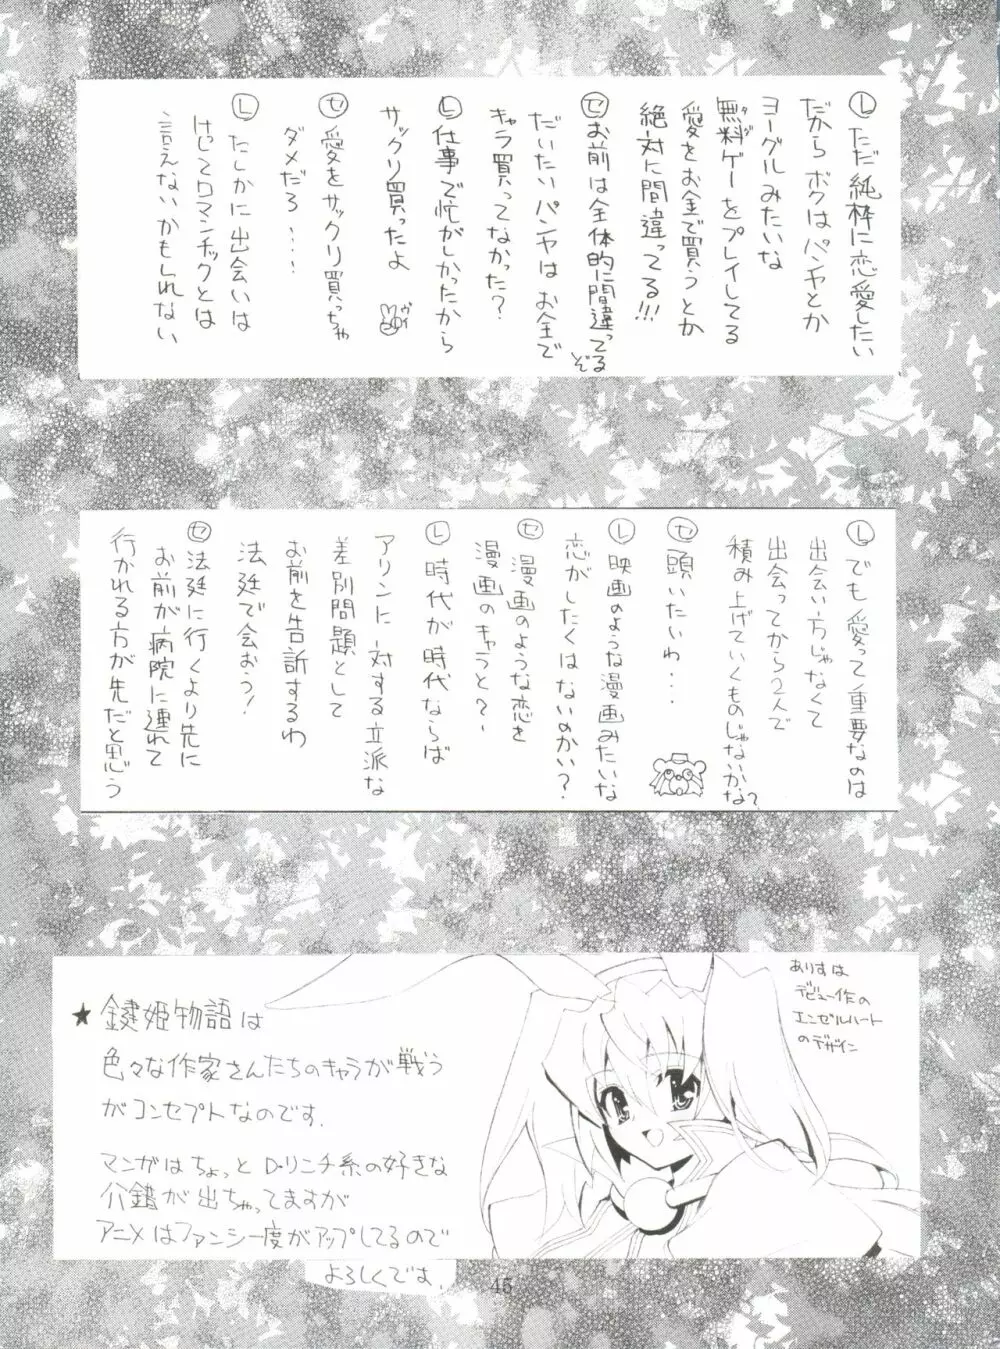 Ⓛただ純粋に恋愛したい
だからボクはパンヤとか
ヨーグルみたいな
無料ゲーをプレイしてる
タダ
愛をお金で買うとか
絶対に間違ってる!!!
㋝お前は全体的に間違ってるぞ
だいたいパンヤはお金で
キャラ買ってなかった?
Ⓛ仕事で忙がしかったから
サックリ買ったよ
ヴイ
㋝愛をサックリ買っちゃ
ダメだろ‥‥
Ⓛたしかに出会いは
けしてロマンチックとは
言えないかもしれない
Ⓛでも愛って重要なのは
出会い方じゃなくて
出会ってから2人で
積み上げていくものじゃないかな?
㋝頭いたいわ‥‥
Ⓛ映画のような漫画みたいな
恋がしたくはないのかい?
㋝漫画のような恋を
漫画のキャラと?~
Ⓛ時代が時代ならば
アリンに対する立派な
差別問題として
お前を告訴するわ
法廷で会おう!
㋝法廷に行くより先に
お前が病院に連れて
行かれる方が先だと思う
ありすは
デビュー作の
エンゼルハート
のデザイン
★鍵姫物語は
色々な作家さんたちのキャラが戦う
がコンセプトなのです.
マンガはちょっとD・リニチ系の好きな
介錯が出ちゃってますが
アニメはファンシー度がアップしてるので
よろしくです.
45